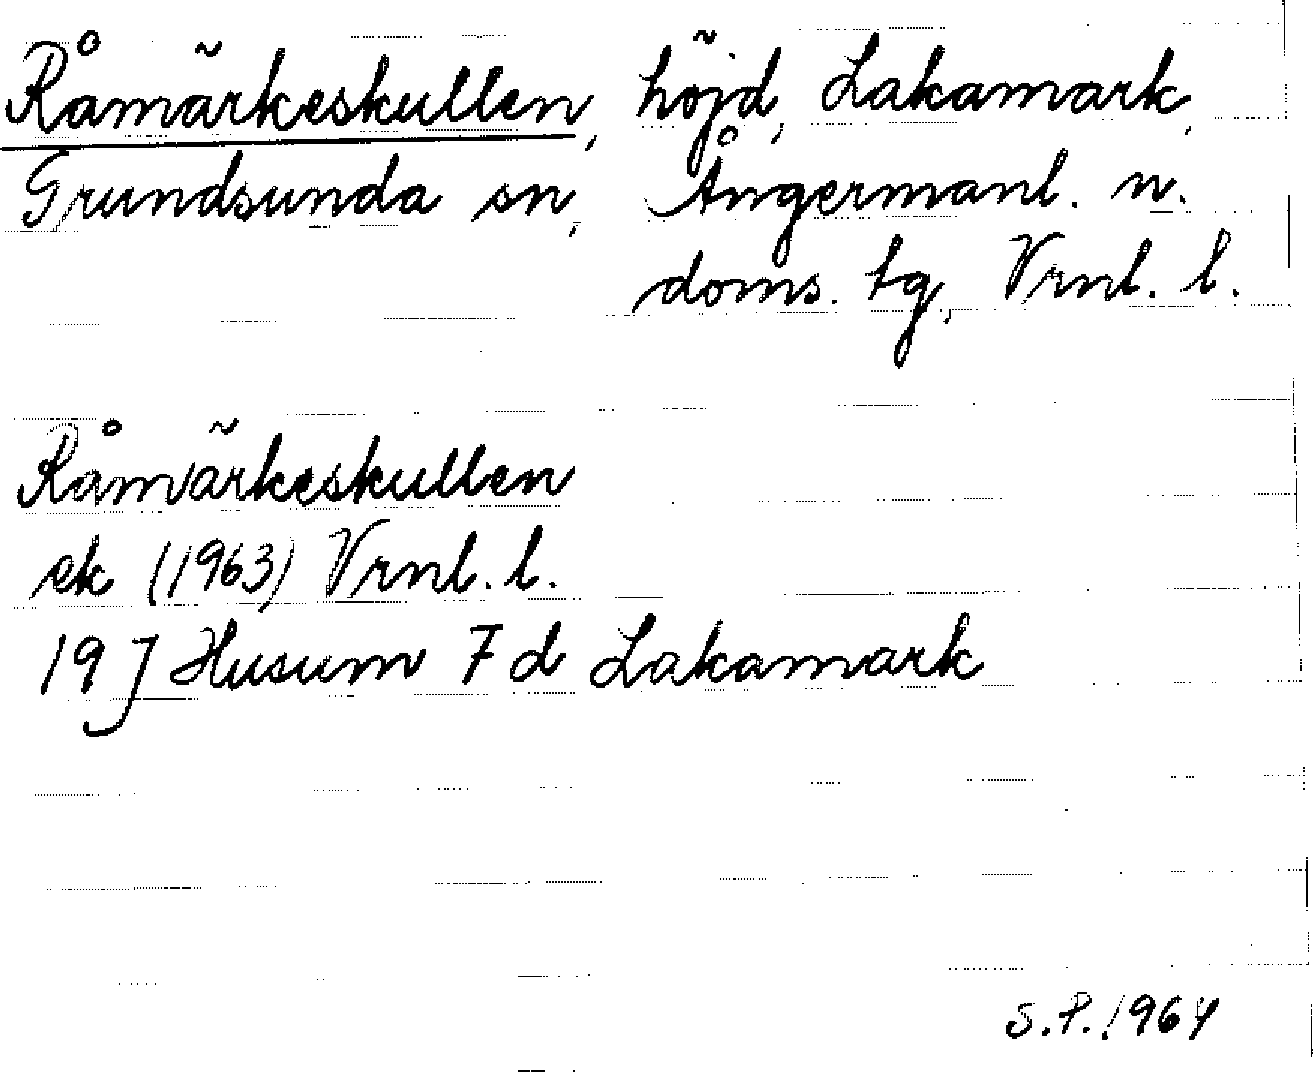 Råmärkeskullen, höjd, Lakamark,
Grundsunda sn, Ångermanl. n.
doms. tg, Vrnl. l.
Råmärkeskullen
ek (1963) Vrnl. l.
19 J Husum 7 d Lakamark
S.P. 1964